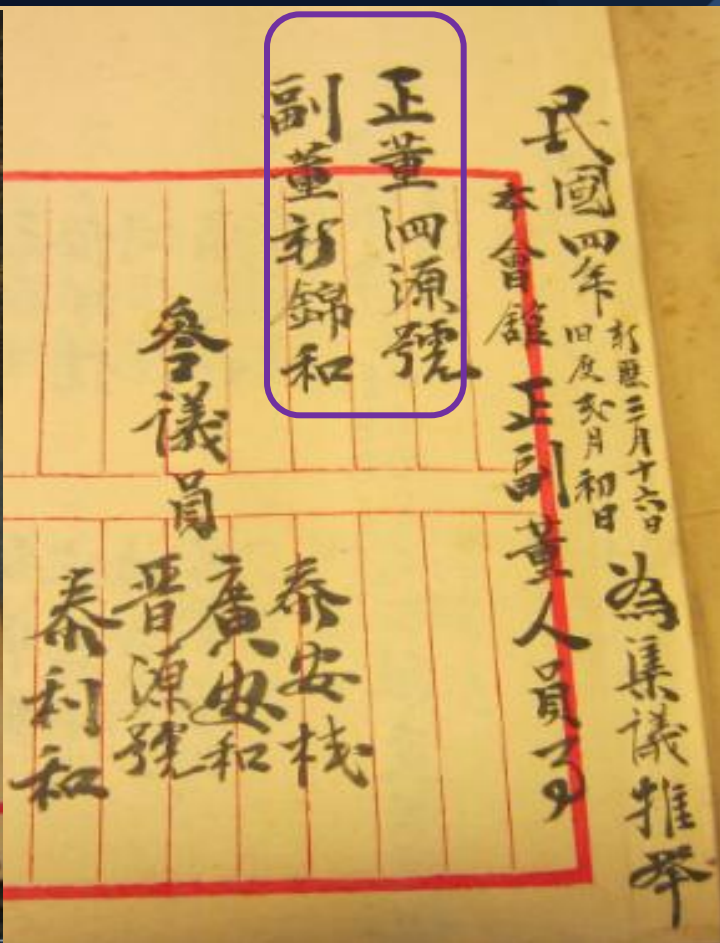 民國四年
新歷三月十六日
旧度弍月初日
為集議推举
本會館正副董人員
正董泗源號
副董新錦和
叅議員
泰安栈
廣安和
晋源號
泰利和